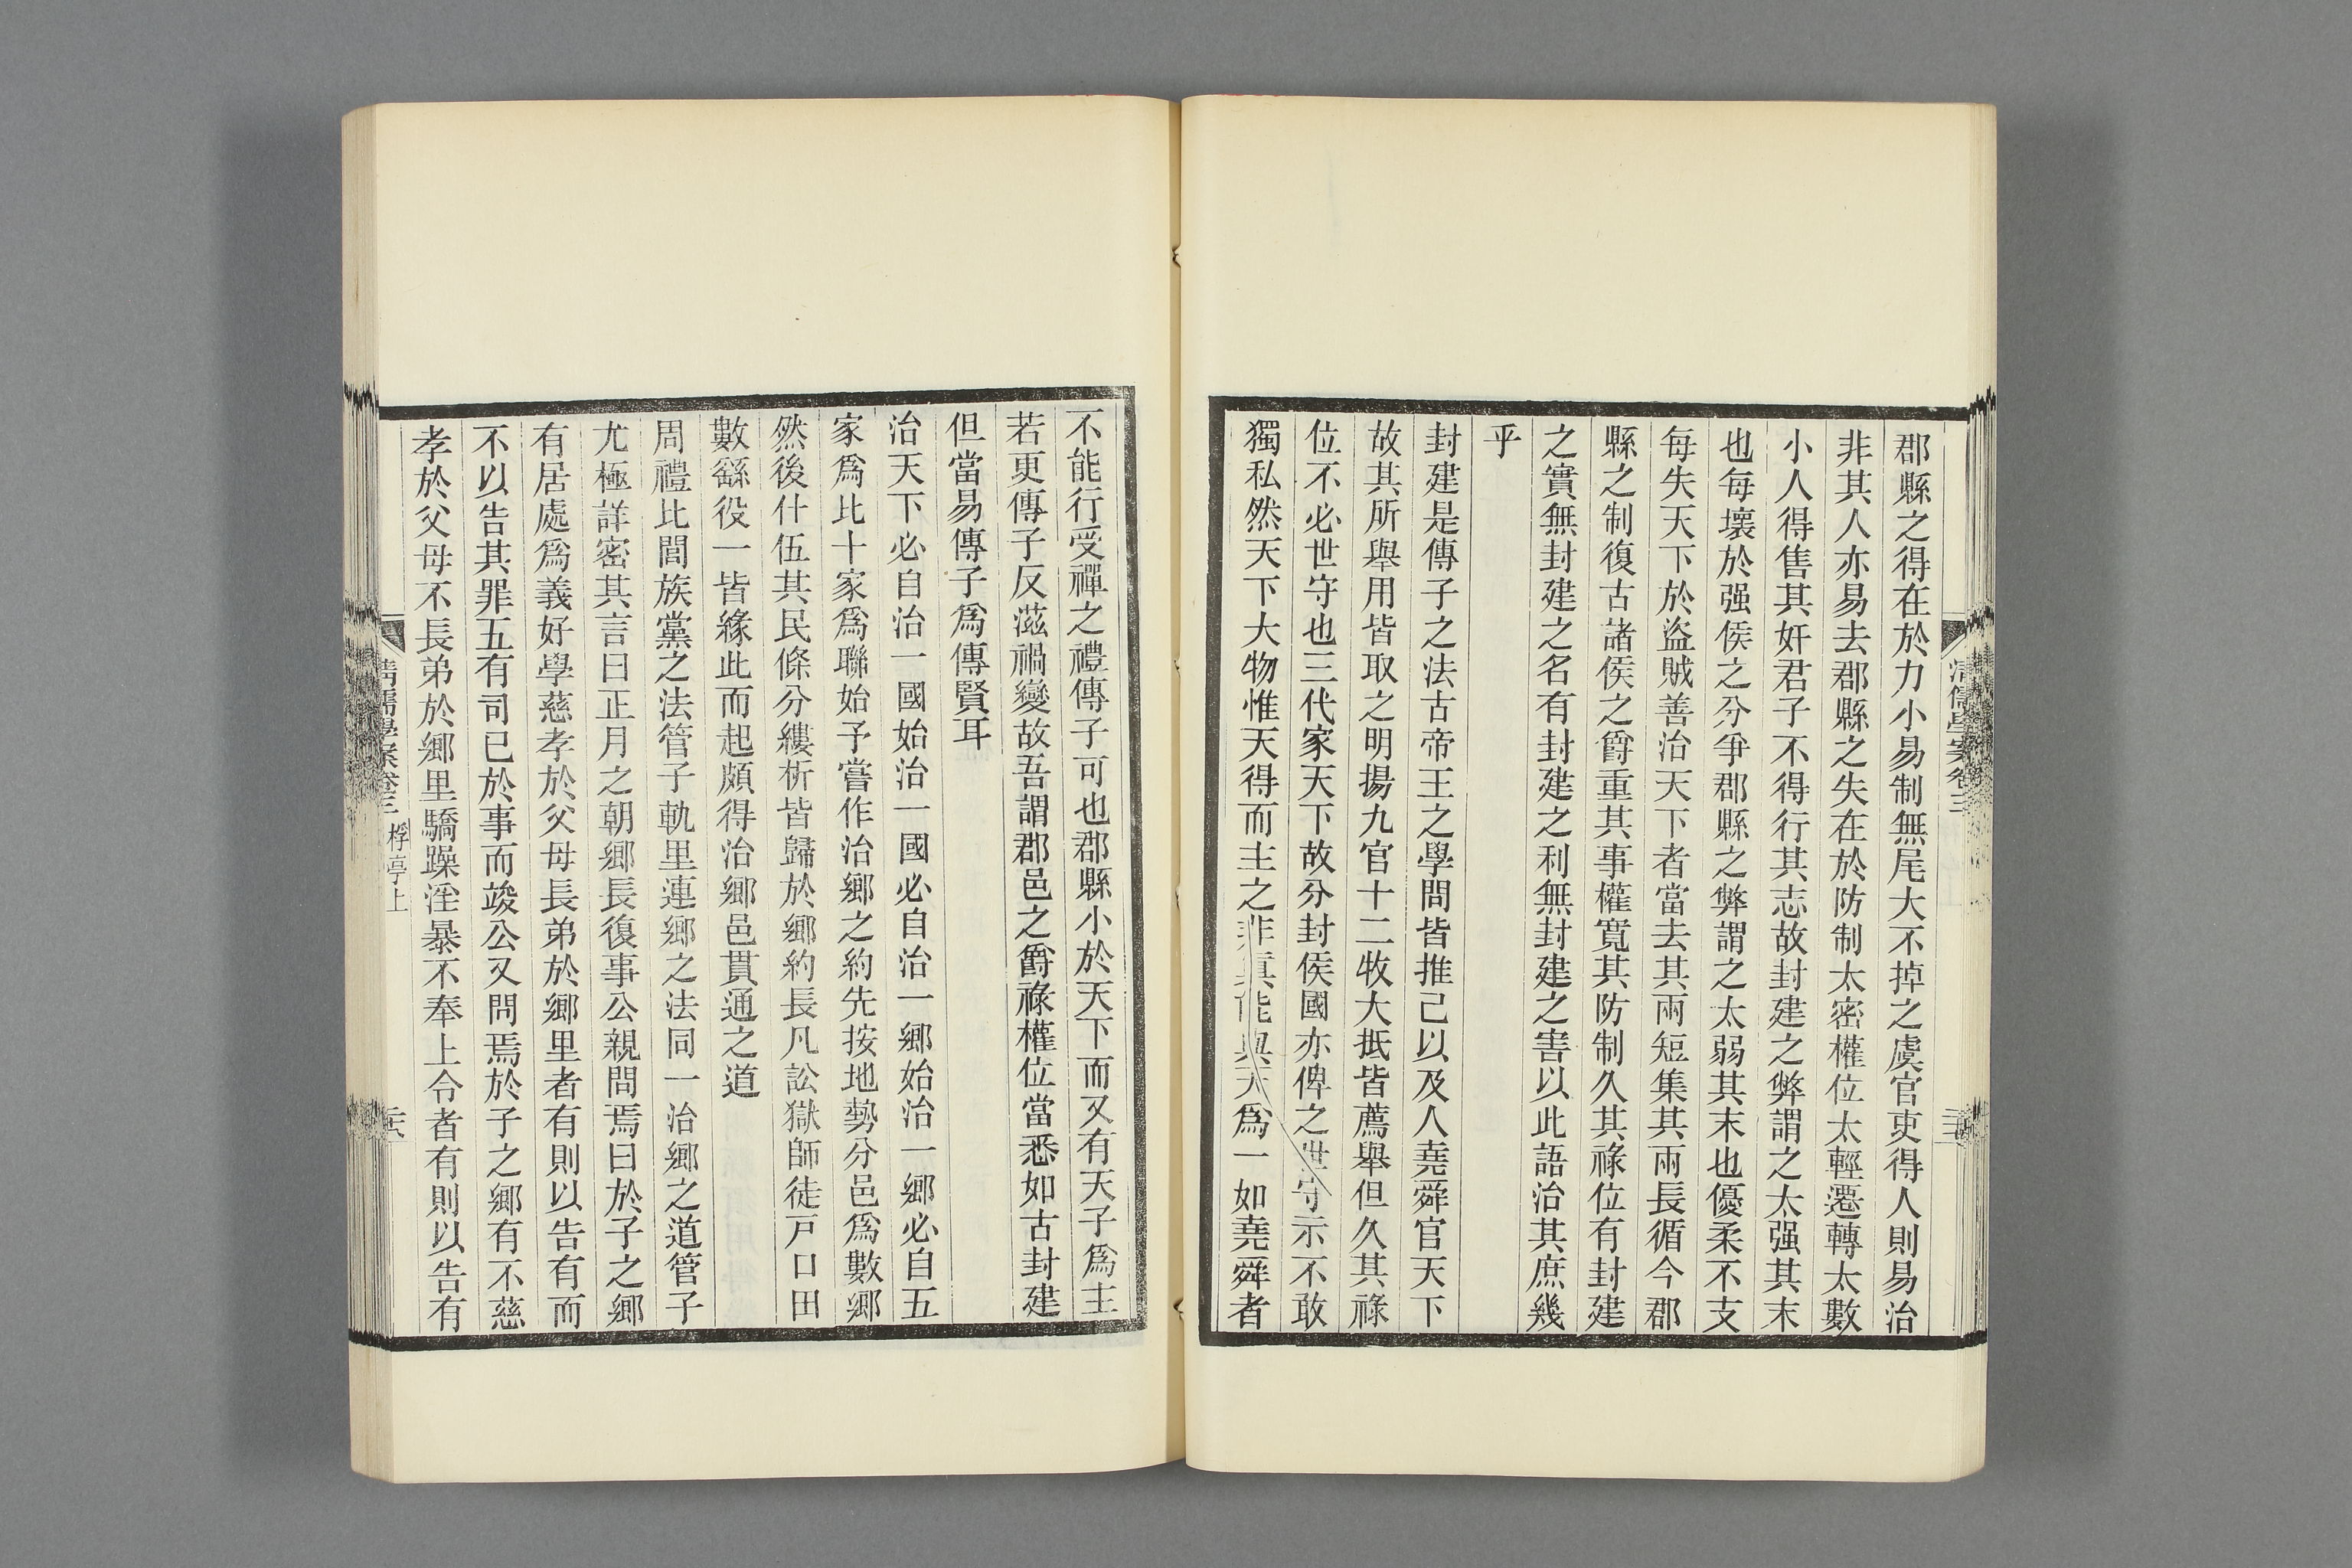 郡縣之得在於力小易制無尾大不掉之虞官吏得人則易治
非其人亦易去郡縣之失在於防制太密權位太輕遷轉太數
小人得售其奸君子不得行其志故封建之弊謂之太强其末
也每壞於强侯之分爭郡縣之弊謂之太弱其末也優柔不支
每失天下於盜賊善治天下者當去其兩短集其兩長循今郡
縣之制復古諸侯之爵重其事權寬其防制久其祿位有封建
之實無封建之名有封建之利無封建之害以此語治其庶幾
乎
封建是傳子之法古帝王之學問皆推己以及人堯舜官天下
故其所舉用皆取之明揚九官十二牧大抵皆薦舉但久其祿
位不必世守也三代家天下故分封侯國亦俾之世守示不敢
獨私然天下大物惟天得而主之非眞能與天爲一如堯舜者
不能行受禪之禮傳子可也郡縣小於天下而又有天子爲主
若更傳子反滋禍變故吾謂郡邑之爵祿權位當悉如古封建
但當易傳子爲傳賢耳
治天下必自治一國始治一國必自治一鄉始治一鄉必自五
家爲比十家爲聯始予嘗作治鄉之約先按地勢分邑爲數鄉
然後什伍其民條分縷析皆歸於鄉約長凡訟獄師徒戸口田
數繇役一皆緣此而起頗得治鄉邑貫通之道
周禮比閭族黨之法管子軌里連鄉之法同一治鄉之道管子
尤極詳密其言曰正月之朝鄉長復事公親問焉曰於子之鄉
有居處爲義好學慈孝於父母長弟於鄉里者有則以告有而
不以告其罪五有司已於事而竣公又問焉於子之鄉有不慈
孝於父母不長弟於鄉里驕躁淫暴不奉上令者有則以告有
清儒學案卷三 桴亭上